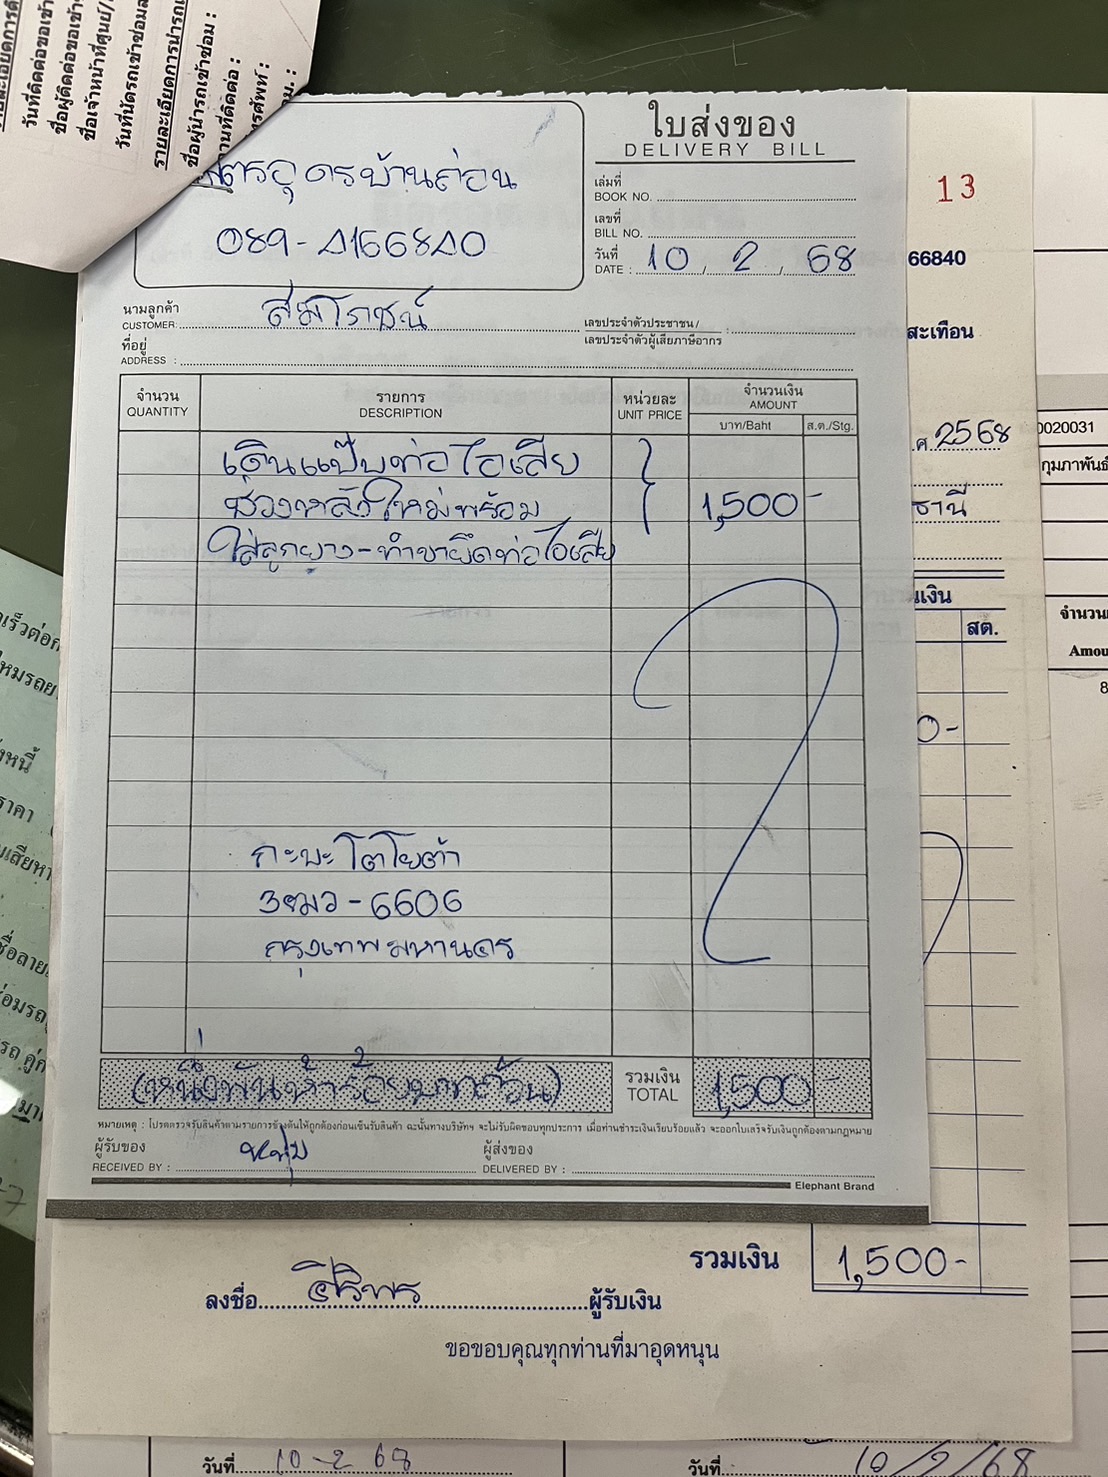 วันที่ติดต่อขอเข้า
ชื่อผู้ติดต่อขอเข้า
ชื่อเจ้าหน้าที่ศูนย์/
วันที่นัดรถเข้าซ่อม
รายละเอียดการนำรถ
ชื่อผู้นำรถเข้าซ่อม :
ใบส่งของ
DELIVERY BILL
อุดรบ้านถ่อน
089-4166840
เล่มที่
BOOK NO.
เลขที่
BILL NO.
วันที่
DATE : 10 / 2 / 68
13
66840
สะเทือน
นามลูกค้า
CUSTOMER: สมโภชน์
เลขประจำตัวประชาชน /
เลขประจำตัวผู้เสียภาษีอากร
ที่อยู่
ADDRESS :
จำนวน
QUANTITY
รายการ
DESCRIPTION
หน่วยละ
UNIT PRICE
จำนวนเงิน
AMOUNT
บาท/Baht
ส.ต./Stg.
เดินแป๊บท่อไอเสีย
ช่วงหลังใหม่พร้อม 1,500-
ใส่ลูกยาง-ทำขายึดท่อไอเสีย
กะบะโตโยต้า
3ฒว-6606
กรุงเทพมหานคร
(หนึ่งพันห้าร้อยบาทถ้วน)
รวมเงิน
TOTAL
1,500-
หมายเหตุ : โปรดตรวจรับสินค้าตามรายการข้างต้นให้ถูกต้องก่อนเซ็นรับสินค้า ฉะนั้นทางบริษัทฯ จะไม่รับผิดชอบทุกประการ เมื่อท่านชำระเงินเรียบร้อยแล้ว จะออกใบเสร็จรับเงินถูกต้องตามกฎหมาย
ผู้รับของ
RECEIVED BY : หนุ่ม
ผู้ส่งของ
DELIVERED BY :
Elephant Brand
ศ. 2568
ธานี
เงิน
สต.
0-
0020031
กุมภาพันธ์
จำนวน
Amou
8
รวมเงิน 1,500-
ลงชื่อ ศิริพร ผู้รับเงิน
ขอขอบคุณทุกท่านที่มาอุดหนุน
วันที่ 10-2 68
วันที่ 10/2/68